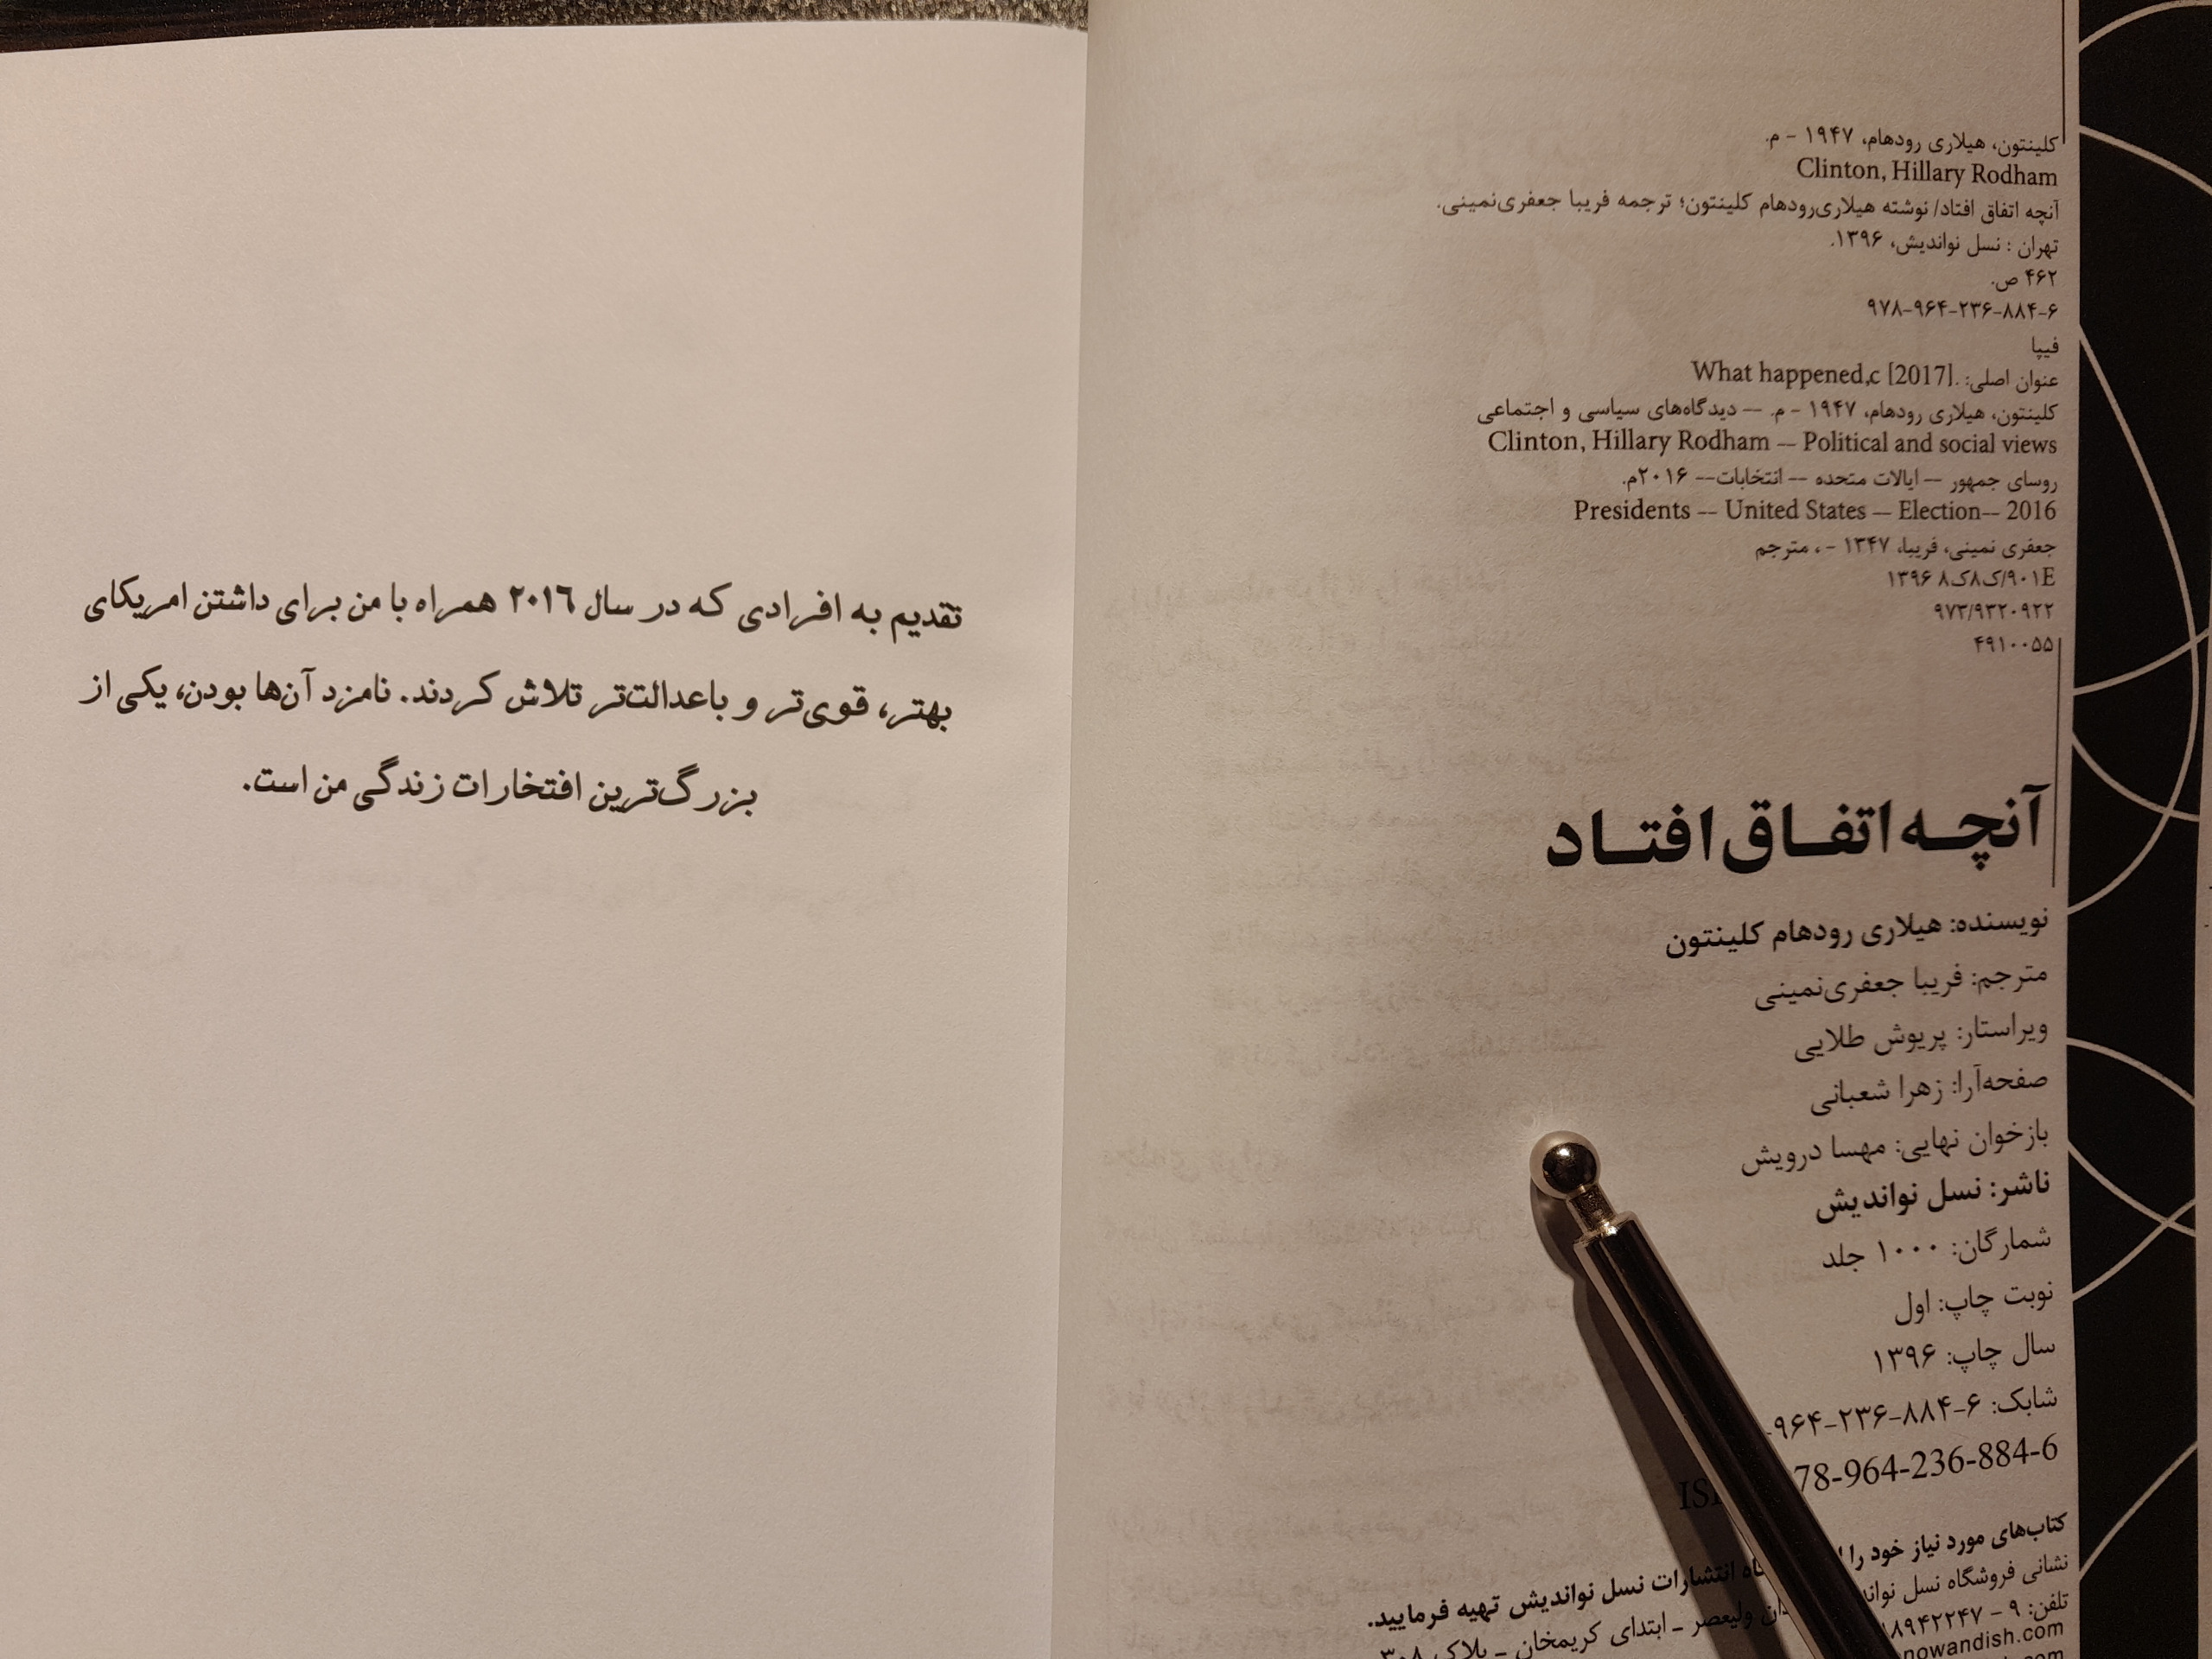 کلینتون، هیلاری رودهام، ۱۹۴۷ - م.
Clinton, Hillary Rodham
آنچه اتفاق افتاد/ نوشته هیلاری‌رودهام کلینتون؛ ترجمه فریبا جعفری‌نمینی.
تهران : نسل نواندیش، ۱۳۹۶.
۴۶۲ ص.
۹۷۸-۹۶۴-۲۳۶-۸۸۴-۶
فیپا
عنوان اصلی: .What happened,c [2017]
کلینتون، هیلاری رودهام، ۱۹۴۷ - م. -- دیدگاه‌های سیاسی و اجتماعی
Clinton, Hillary Rodham -- Political and social views
روسای جمهور -- ایالات متحده -- انتخابات-- ۲۰۱۶م.
Presidents -- United States -- Election-- 2016
جعفری نمینی، فریبا، ۱۳۴۷ - ، مترجم
E۹۰۱/ک۸ک۸ ۱۳۹۶
۹۷۳/۹۳۲۰۹۲۲
۴۹۱۰۰۵۵
آنچه اتفاق افتاد
نویسنده: هیلاری رودهام کلینتون
مترجم: فریبا جعفری‌نمینی
ویراستار: پریوش طلایی
صفحه‌آرا: زهرا شعبانی
بازخوان نهایی: مهسا درویش
ناشر: نسل نواندیش
شمارگان: ۱۰۰۰ جلد
نوبت چاپ: اول
سال چاپ: ۱۳۹۶
شابک: ۹۶۴-۲۳۶-۸۸۴-۶-
78-964-236-884-6
کتاب‌های مورد نیاز خود را انتشارات نسل نواندیش تهیه فرمایید.
نشانی فروشگاه نسل ولیعصر - ابتدای کریمخان - پلاک ۳۰۸
تلفن: ۹ - ۸۸۹۴۲۲۴۷
nowandish.com
تقدیم به افرادی که در سال ۲۰۱٦ همراه با من برای داشتن امریکای
بهتر، قوی‌تر و باعدالت‌تر تلاش کردند. نامزد آن‌ها بودن، یکی از
بزرگ‌ترین افتخارات زندگی من است.